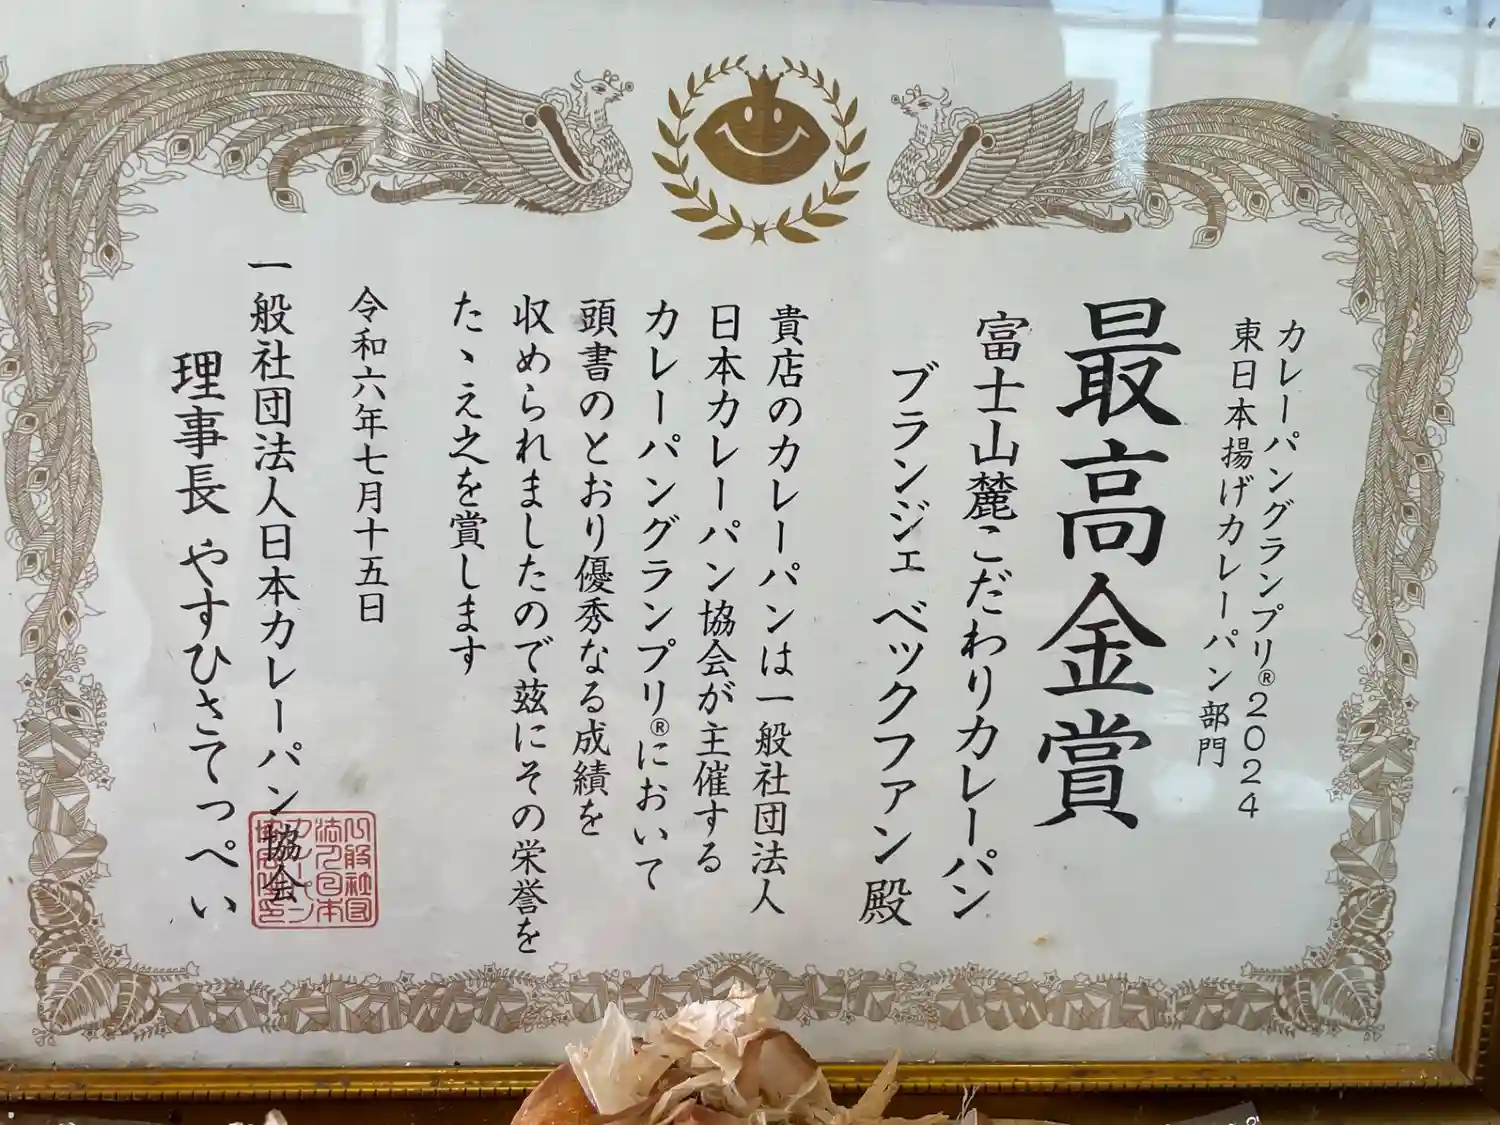 カレーパングランプリ®２０２４
東日本揚げカレーパン部門
最高金賞
富士山麓こだわりカレーパン
ブランジェ ベックファン 殿
貴店のカレーパンは一般社団法人
日本カレーパン協会が主催する
カレーパングランプリ®において
頭書のとおり優秀なる成績を
収められましたので茲にその栄誉を
たゝえ之を賞します
令和六年七月十五日
一般社団法人日本カレーパン協会
理事長 やすひさてっぺい